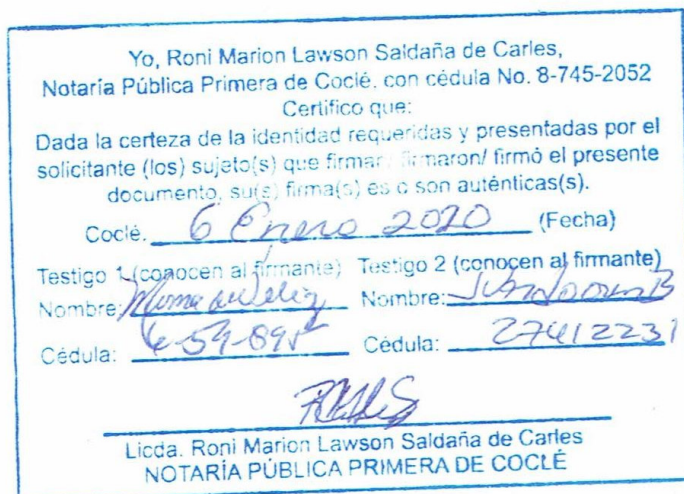 Yo, Roni Marion Lawson Saldaña de Carles,
Notaría Pública Primera de Coclé, con cédula No. 8-745-2052
Certifico que:
Dada la certeza de la identidad requeridas y presentadas por el
solicitante (los) sujeto(s) que firmar firmaron/ firmó el presente
documento, su(s) firma(s) es o son auténticas(s).
Coclé. 6 Enero 2020 (Fecha)
Testigo 1 (conocen al firmante) Testigo 2 (conocen al firmante)
Nombre: Nombre:
Cédula: Cédula: 27412231
Licda. Roni Marion Lawson Saldaña de Carles
NOTARÍA PÚBLICA PRIMERA DE COCLÉ